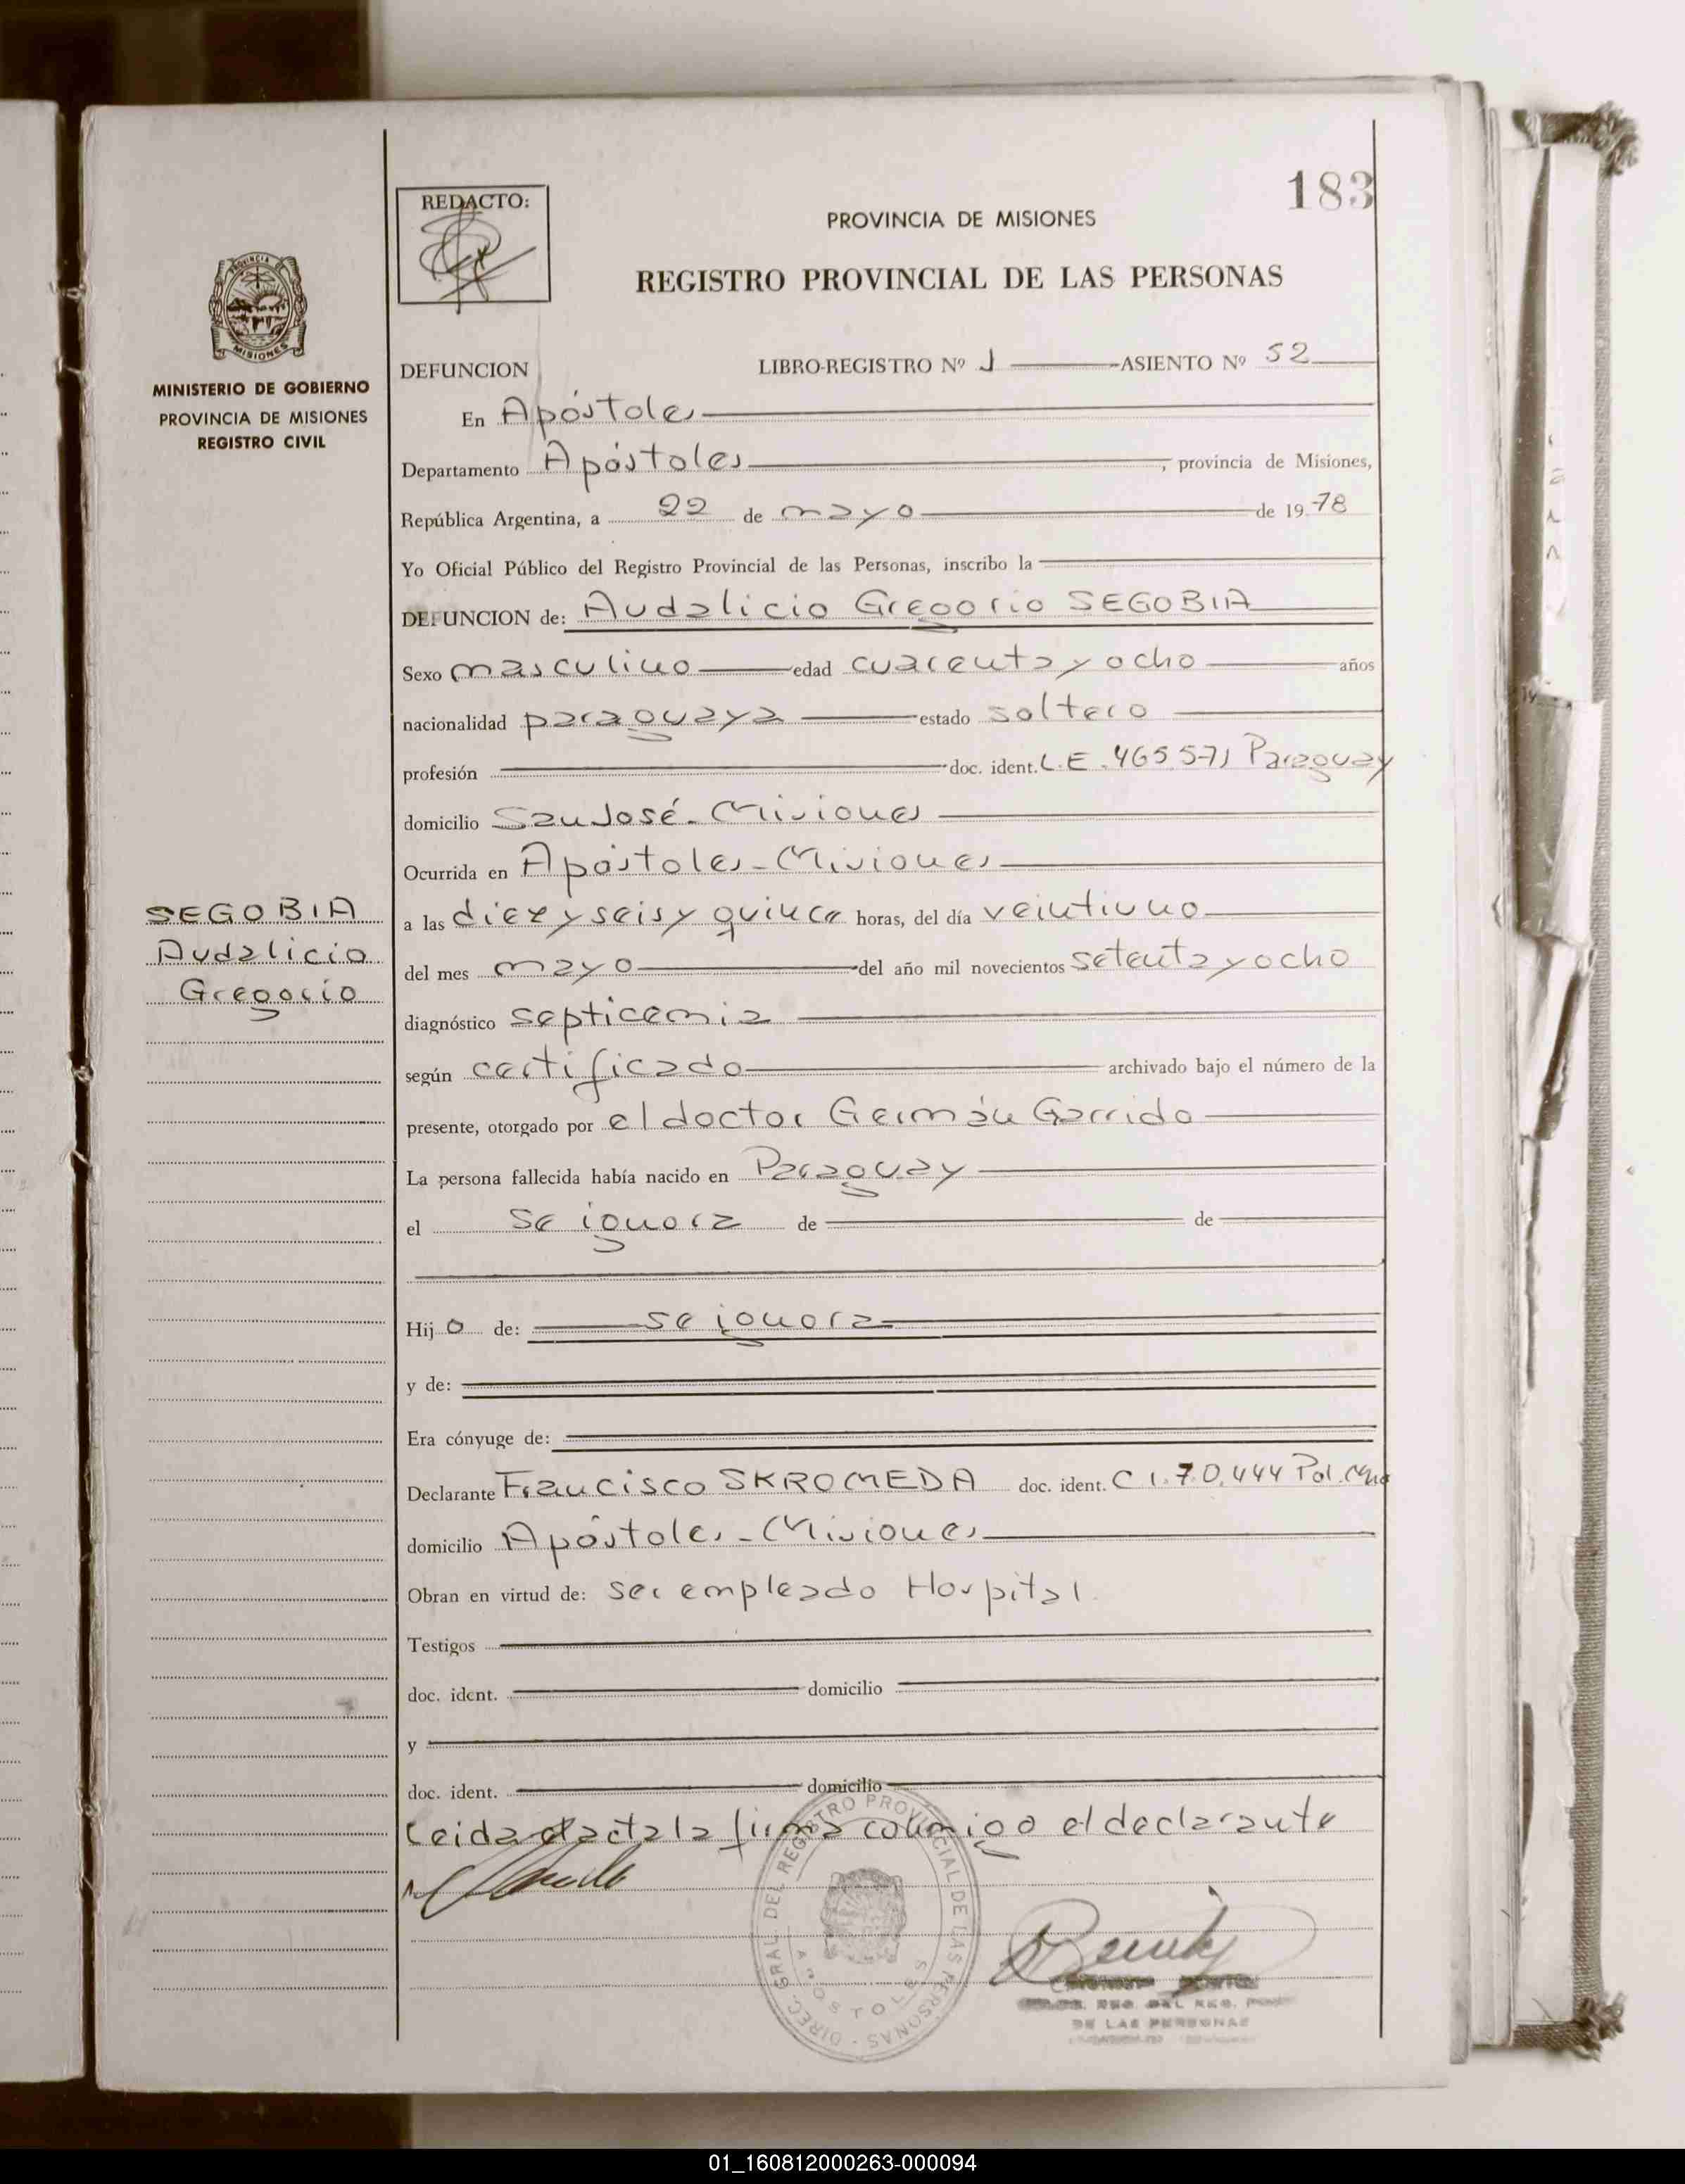 183
REDACTO:
PROVINCIA DE MISIONES
REGISTRO PROVINCIAL DE LAS PERSONAS
PROVINCIA
MISIONES
MINISTERIO DE GOBIERNO
PROVINCIA DE MISIONES
REGISTRO CIVIL
DEFUNCION LIBRO-REGISTRO Nº 1 ASIENTO Nº 52
En Apóstoles
Departamento Apóstoles, provincia de Misiones,
República Argentina, a 22 de mayo de 1978
Yo Oficial Público del Registro Provincial de las Personas, inscribo la
DEFUNCION de: Audalicio Gregorio SEGOBIA
Sexo masculino edad cuarenta y ocho años
nacionalidad paraguaya estado soltero
profesión doc. ident. L.E. 465571 Paraguay
domicilio San José - Misiones
Ocurrida en Apóstoles - Misiones
SEGOBIA
Audalicio
Gregorio
a las diez y seis y quince horas, del día veintiuno
del mes mayo del año mil novecientos setenta y ocho
diagnóstico septicemia
según certificado archivado bajo el número de la
presente, otorgado por el doctor Germán Garrido
La persona fallecida había nacido en Paraguay
el se ignora de de
Hijo de: se ignora
y de:
Era cónyuge de:
Declarante Francisco SKROMEDA doc. ident. C I. 70.444 Pol. Mnes
domicilio Apóstoles - Misiones
Obran en virtud de: ser empleado Hospital.
Testigos
doc. ident. domicilio
y
doc. ident. domicilio
Leida el acta la firma conmigo el declarante
DIREC. GRAL. DEL REGISTRO PROVINCIAL DE LAS PERSONAS
APOSTOLES
DE LAS PERSONAS
01_160812000263-000094